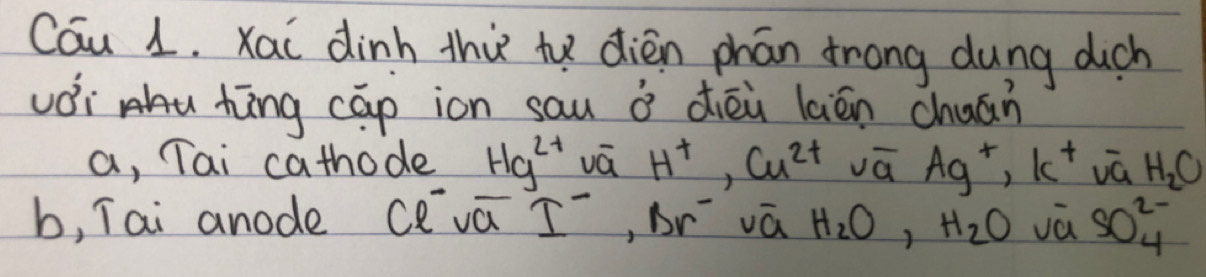 Câu 1. Xác định thứ tự điện phân trong dung dịch
với từng cặp ion sau ở điều kiện chuẩn
a, Tại cathode Hg²⁺ và H⁺, Cu²⁺ và Ag⁺, K⁺ và H₂O
b, Tại anode Cl⁻ và I⁻, Br⁻ và H₂O, H₂O và SO₄²⁻